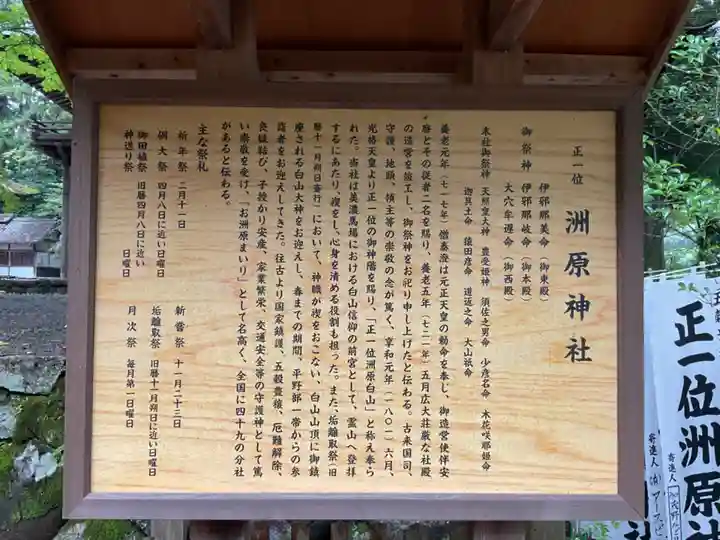 正一位 洲原神社
御祭神 伊邪那美命(御東殿)
伊邪那岐命(御本殿)
大穴牟遅命(御西殿)
末社御祭神 天照皇大神 豊受姫神 須佐之男命 少彦名命 木花咲耶姫命
迦具土命 猿田彦命 道返之命 大山祇命
養老元年(七一七年)僧泰澄は元正天皇の勅命を奉し、御造営使伴安
麿とその従者二名を賜り、養老五年(七二一年)五月広大荘厳な社殿
の造営を竣工し、御祭神をお祀り申し上げたと伝わる。古来国司、
守護、地頭、領主等の崇敬の念が篤く、享和元年(一八〇一)六月、
光格天皇より正一位の御神階を賜り、「正一位洲原白山」と称え奉ら
れた。当社は美濃馬場における白山信仰の前宮として、霊山へ登拝
するにあたり、禊をし、心身を清める役割も担った。また、垢離取祭(旧
暦十一月朔日斎行)において、神職が禊をおこない、白山山頂に御鎮
座される白山大神をお迎えし、春までの期間、平野部一帯からの参
詣者をお迎えしてきた。往古より国家鎮護、五穀豊穣、厄難解除、
良縁結び、子授かり安産、家業繁栄、交通安全等の守護神として篤
い崇敬を受け、「お洲原まいり」として名高く、全国に四十九の分社
があると伝わる。
主な祭礼
祈年祭 二月十一日 新嘗祭 十一月二十三日
例大祭 四月八日に近い日曜日 垢離取祭 旧暦十一月朔日に近い日曜日
御田植祭 旧暦四月八日に近い 月次祭 毎月第一日曜日
神送り祭 日曜日
正一位洲原
寄進人
正一位洲
寄進人